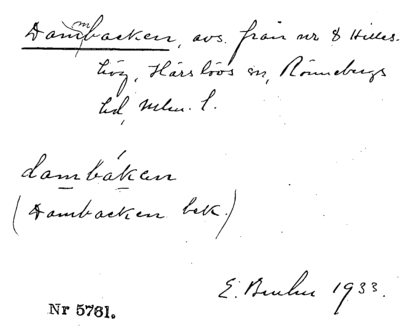 Dambacken, avs. från nr 8 Hilles-
hög, Härslövs sn, Rönnebergs
hd, Mlm. l.
dambákan
(Dambacken bek.)
E. 1933.
Nr 5761.